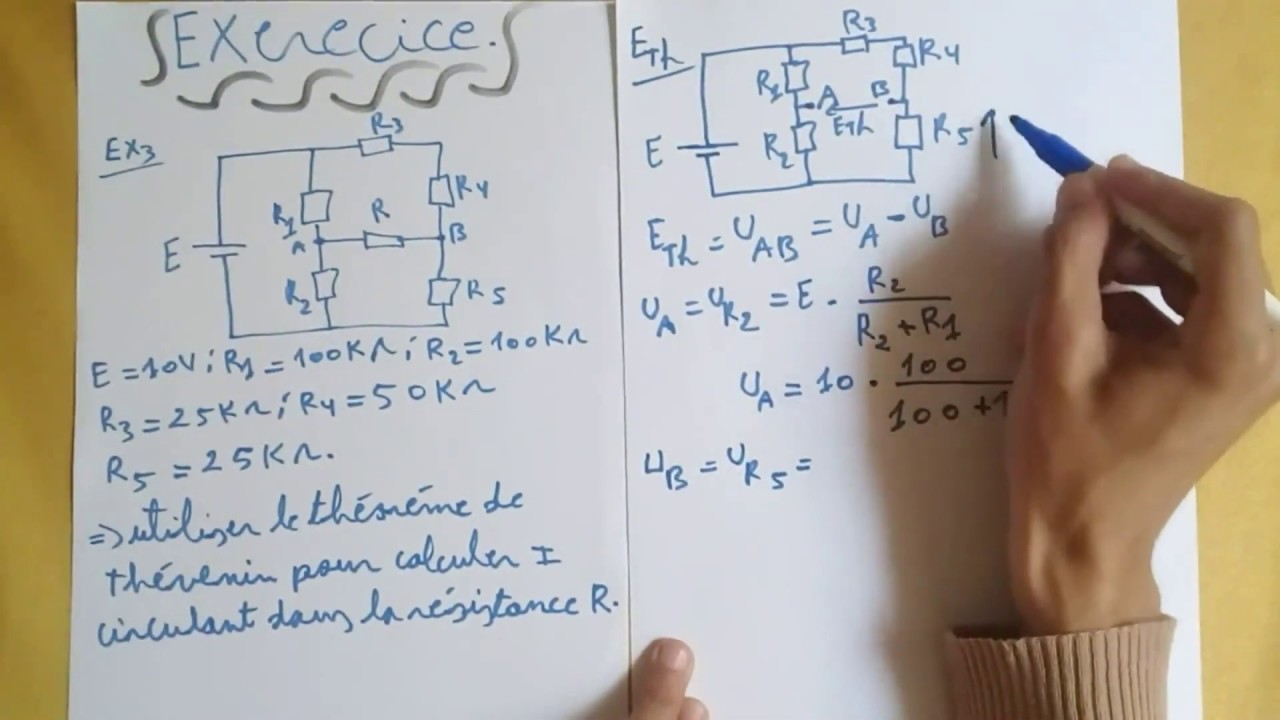 EXerecice.
EX3
R3
R4
R1
R
A
B
E
R2
R5
E = 10V ; R1 = 100KΩ ; R2 = 100KΩ
R3 = 25KΩ ; R4 = 50KΩ
R5 = 25KΩ.
=> utiliser le théoréme de
thévenin pour calculer I
circulant dans la résistance R.
ETh
R3
R4
R1
A
B
ETh
E
R2
R5
ETh = UAB = UA - UB
UA = UR2 = E . R2 / R2 + R1
UA = 10 . 100 / 100 + 1
UB = UR5 =